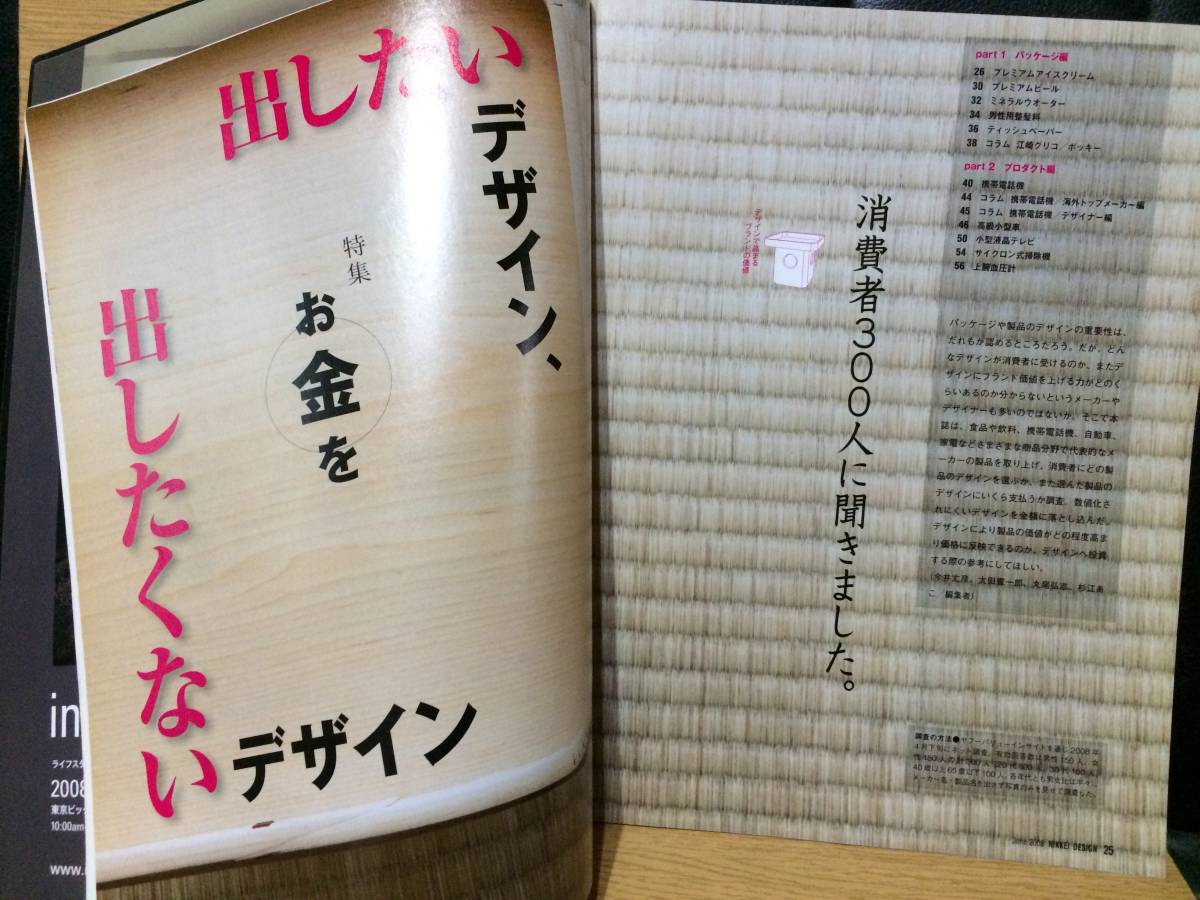 特集
お金を
出したい
デザイン、
出したくない
デザイン
in
ライフスタ
2008
東京ビッ
10:00am
www.i
消費者300人に聞きました。
デザインで高まる
ブランドの価値
part 1 パッケージ編
26 プレミアムアイスクリーム
30 プレミアムビール
32 ミネラルウオーター
34 男性用整髪料
36 ティッシュペーパー
38 コラム 江崎グリコ/ポッキー
part 2 プロダクト編
40 携帯電話機
44 コラム 携帯電話機/海外トップメーカー編
45 コラム 携帯電話機/デザイナー編
46 高級小型車
50 小型液晶テレビ
54 サイクロン式掃除機
56 上腕血圧計
パッケージや製品のデザインの重要性は、
だれもが認めるところだろう。だが、どん
なデザインが消費者に受けるのか、またデ
ザインにブランド価値を上げる力がどのく
らいあるのか分からないというメーカーや
デザイナーも多いのではないか。そこで本
誌は、食品や飲料、携帯電話機、自動車、
家電などさまざまな商品分野で代表的なメ
ーカーの製品を取り上げ、消費者にどの製
品のデザインを選ぶか、また選んだ製品の
デザインにいくら支払うか調査。数値化さ
れにくいデザインを金額に落とし込んだ。
デザインにより製品の価値がどの程度高ま
り価格に反映できるのか。デザインへ投資
する際の参考にしてほしい。
(今井丈彦、太田憲一郎、丸尾弘志、杉江あ
こ 編集者)
調査の方法●ヤフーバリューインサイトを通じ2008年
4月下旬にネット調査。有効回答数は男性150人、女
性150人の計300人
40歳以上65歳以下100人。各年代とも男女比は半々。
メーカー名・製品名を出さず写真のみを見せて調査した。
June 2008 NIKKEI DESIGN 25